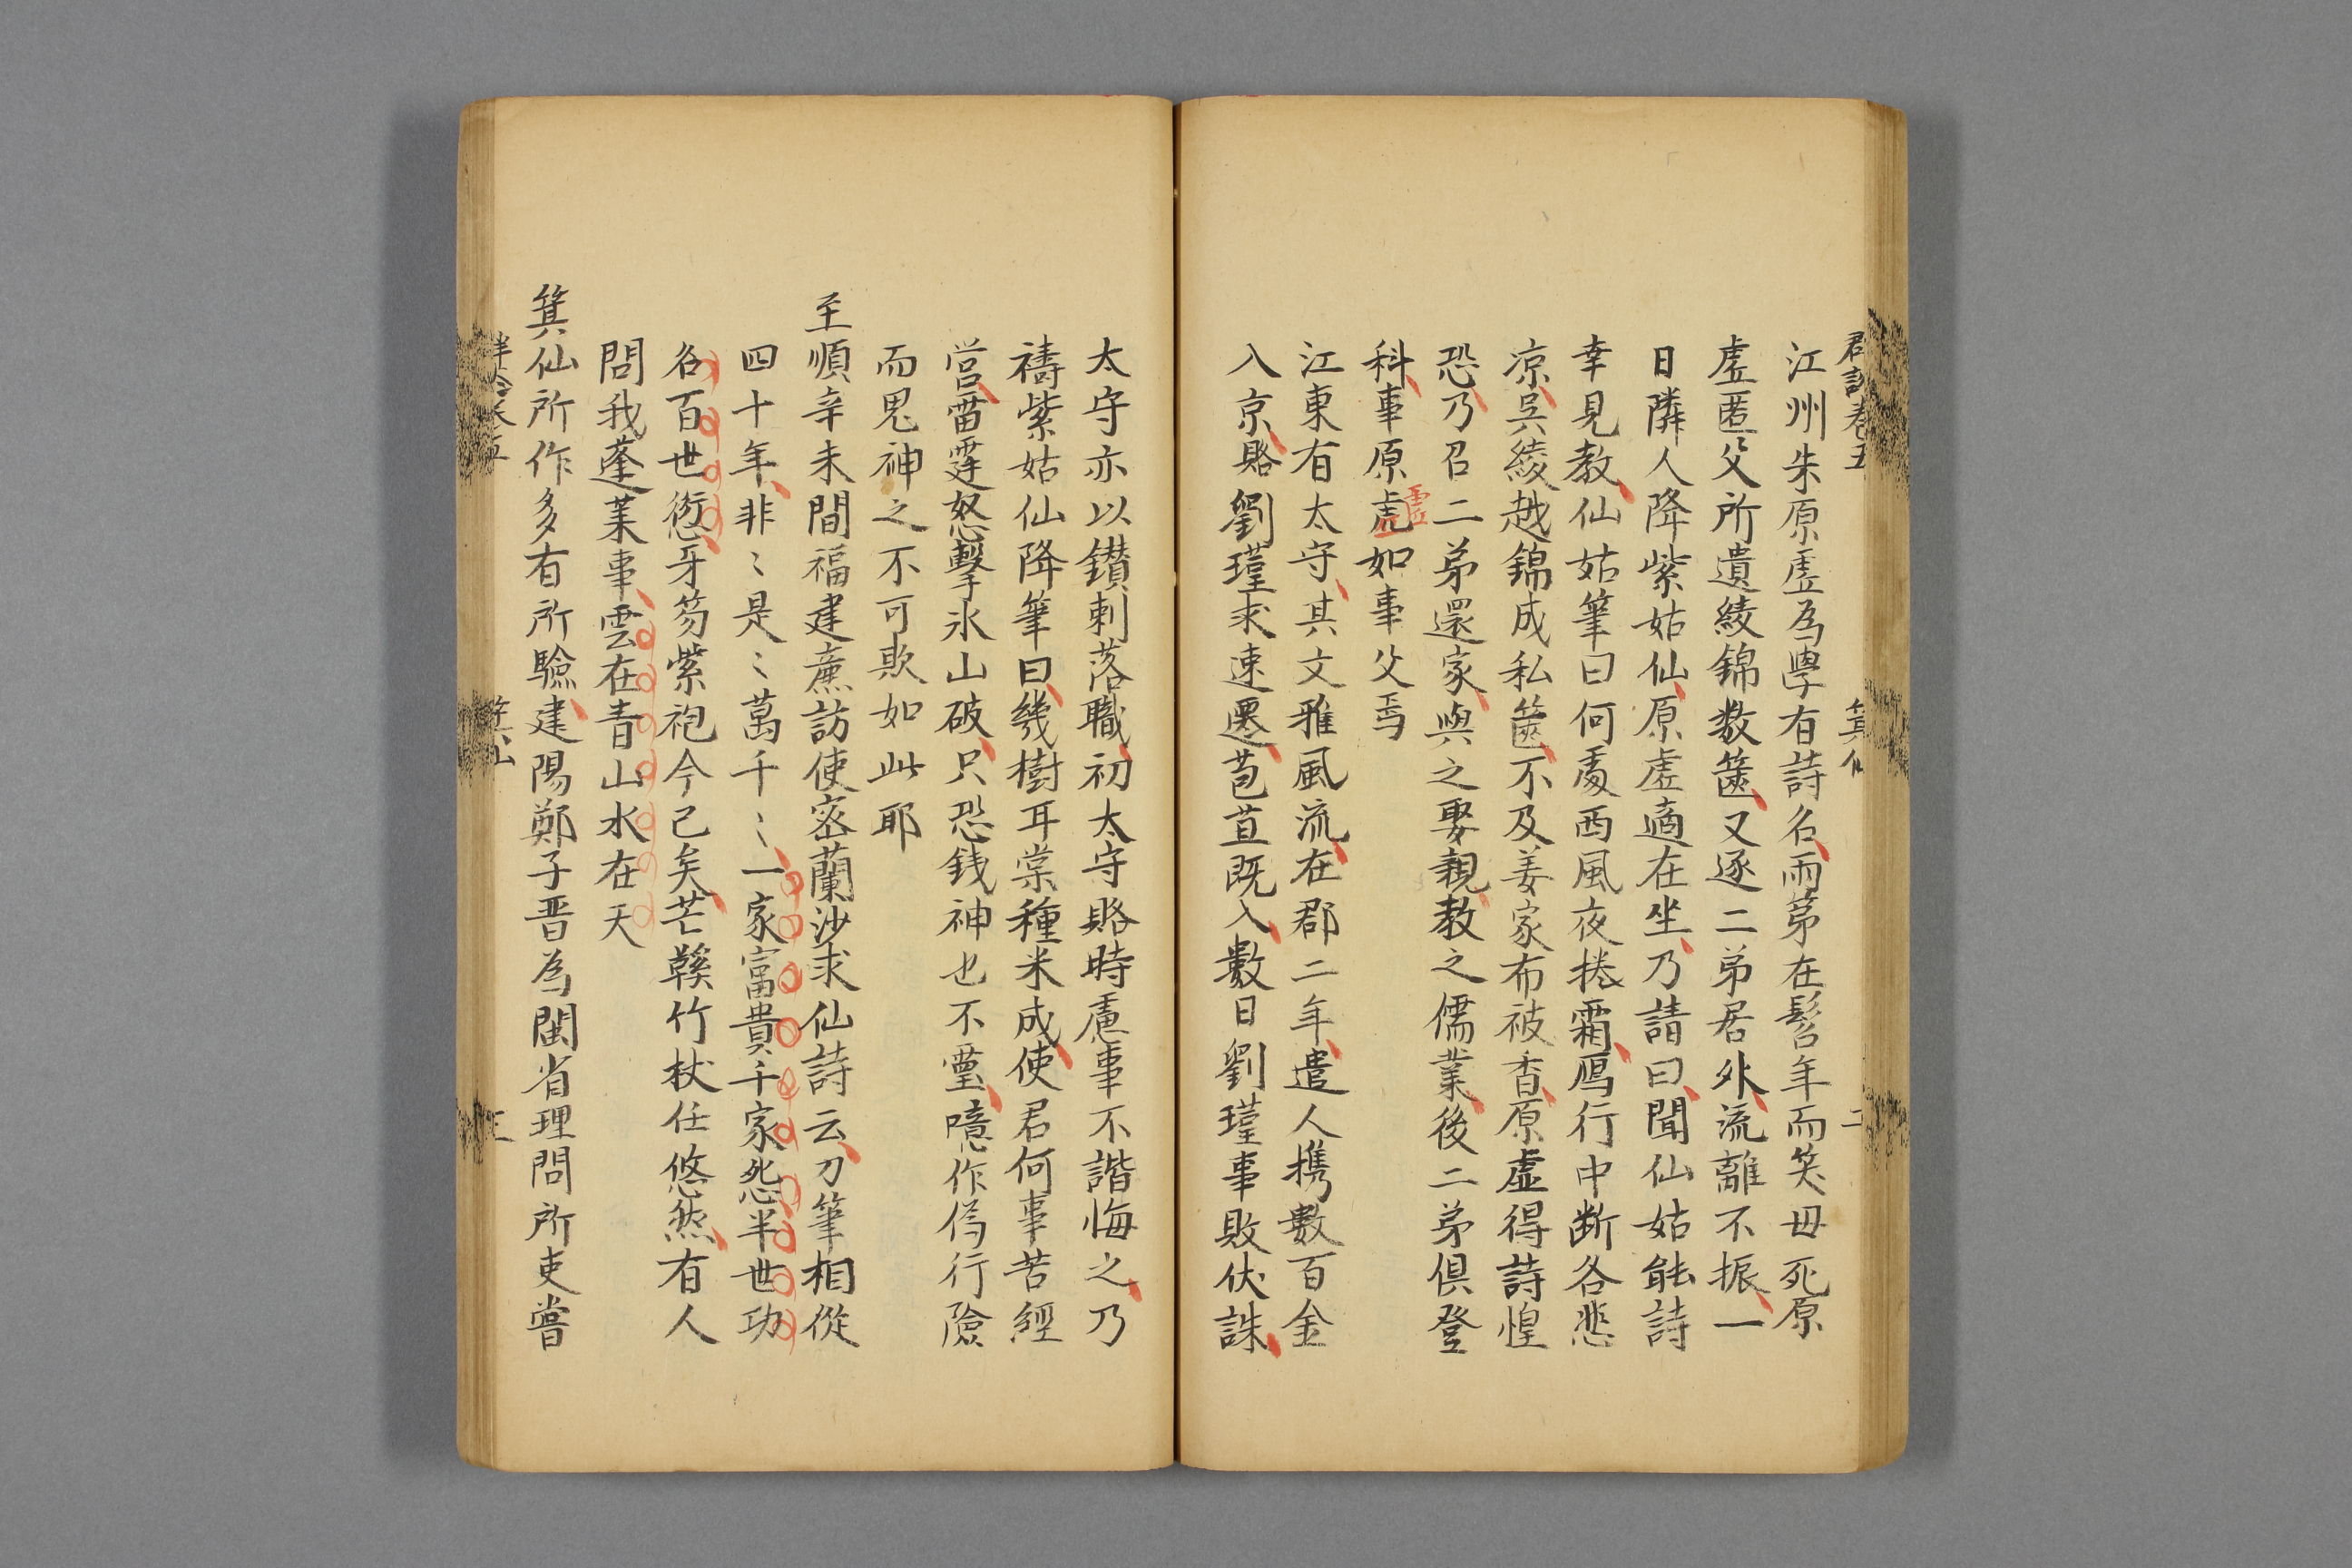 群談卷五
箕仙
二
江州朱原虚為學有詩名兩苐在髫年而笑母死原
虚匿父所遺綾錦数篋又逐二弟居外流離不振一
日隣人降紫姑仙原虚適在坐乃請曰聞仙姑能詩
幸見教仙姑筆曰何處西風夜捲霜鴈行中断各悲
凉吳綾越錦成私篋不及姜家布被香原虚得詩惶
恐乃召二弟還家與之娶親教之儒業後二弟俱登
科事原虎如事父焉
虚
江東有太守其文雅風流在郡二年遣人携數百金
入京賂劉瑾求速遷苞苴既入數日劉瑾事敗伏誅
太守亦以鑽刺落職初太守賂時慮事不諧悔之乃
禱紫姑仙降筆曰幾樹耳棠種米成使君何事苦經
营雷霆怒擊氷山破只恐銭神也不靈噫作僞行險
而鬼神之不可欺如此耶
至順辛未間福建廉訪使宻蘭沙求仙詩云刀筆相從
四十年非〻是〻萬千〻一家富貴千家怨半世功
名百世愆牙笏紫袍今已矣芒鞵竹杖任悠然有人
問我蓬莱事雲在青山水在天
箕仙所作多有所驗建陽鄭子晋為閩省理問所吏嘗
箕仙
三